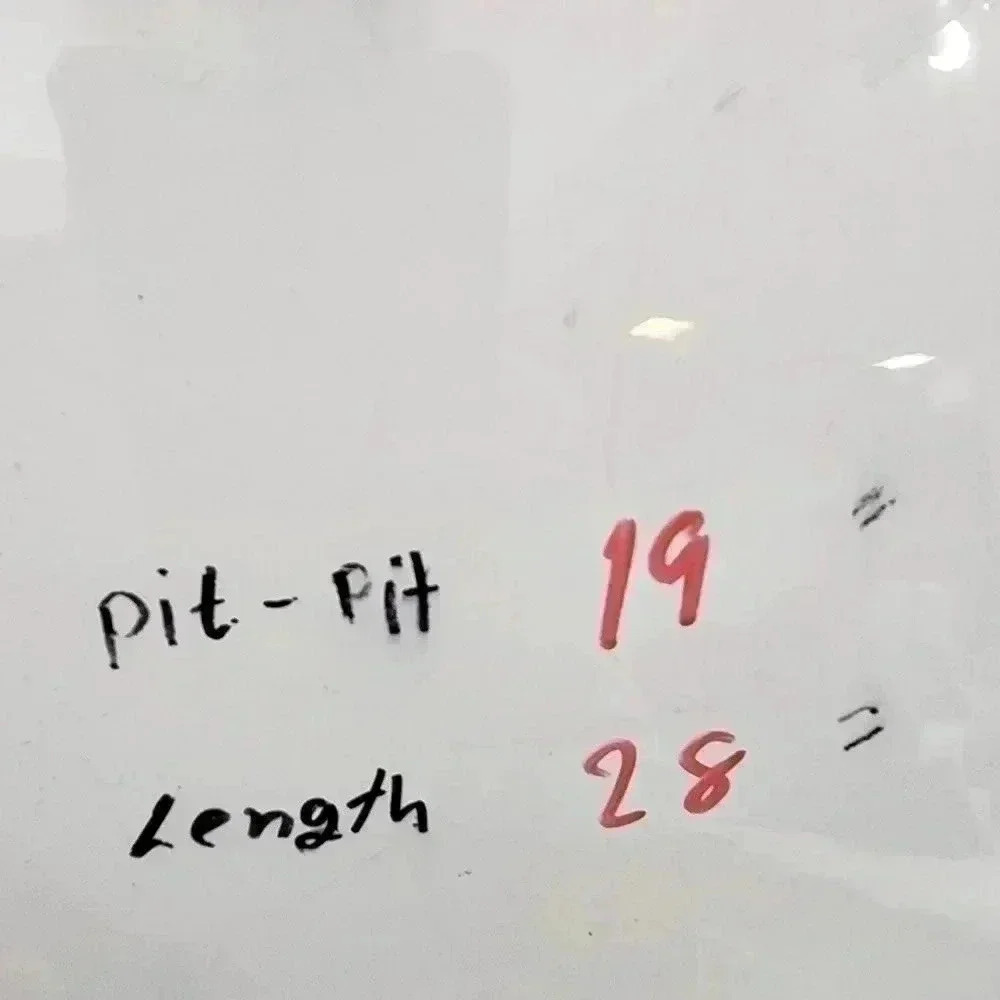 pit - pit 19 "
Length 28 "